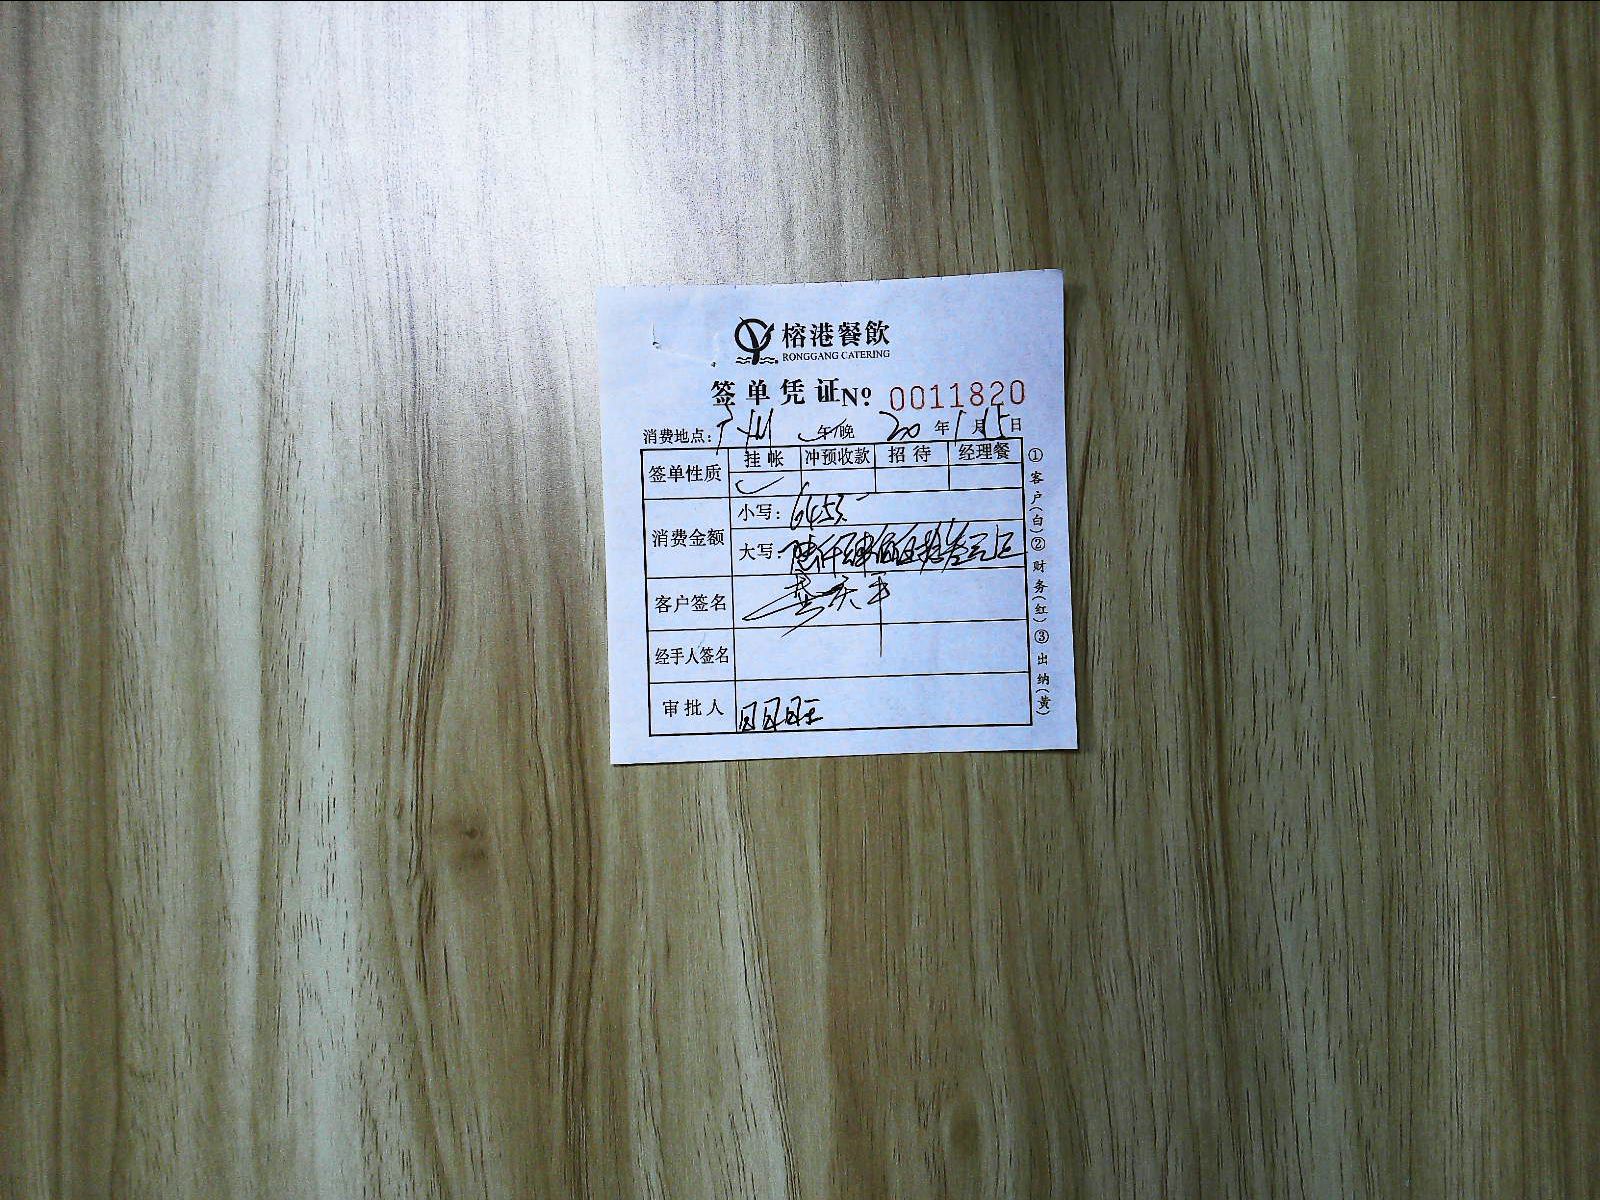 榕港餐飲
RONGGANG CATERING
签单凭证 Nº 0011820
消费地点: 广州 午/晚 20 年 1 月 15 日
签单性质 挂帐 冲预收款 招待 经理餐
消费金额 小写: 6453
大写: 陆仟肆佰伍拾叁元正
客户签名 龚庆平
经手人签名
审批人
①客户(白)②财务(红)③出纳(黄)